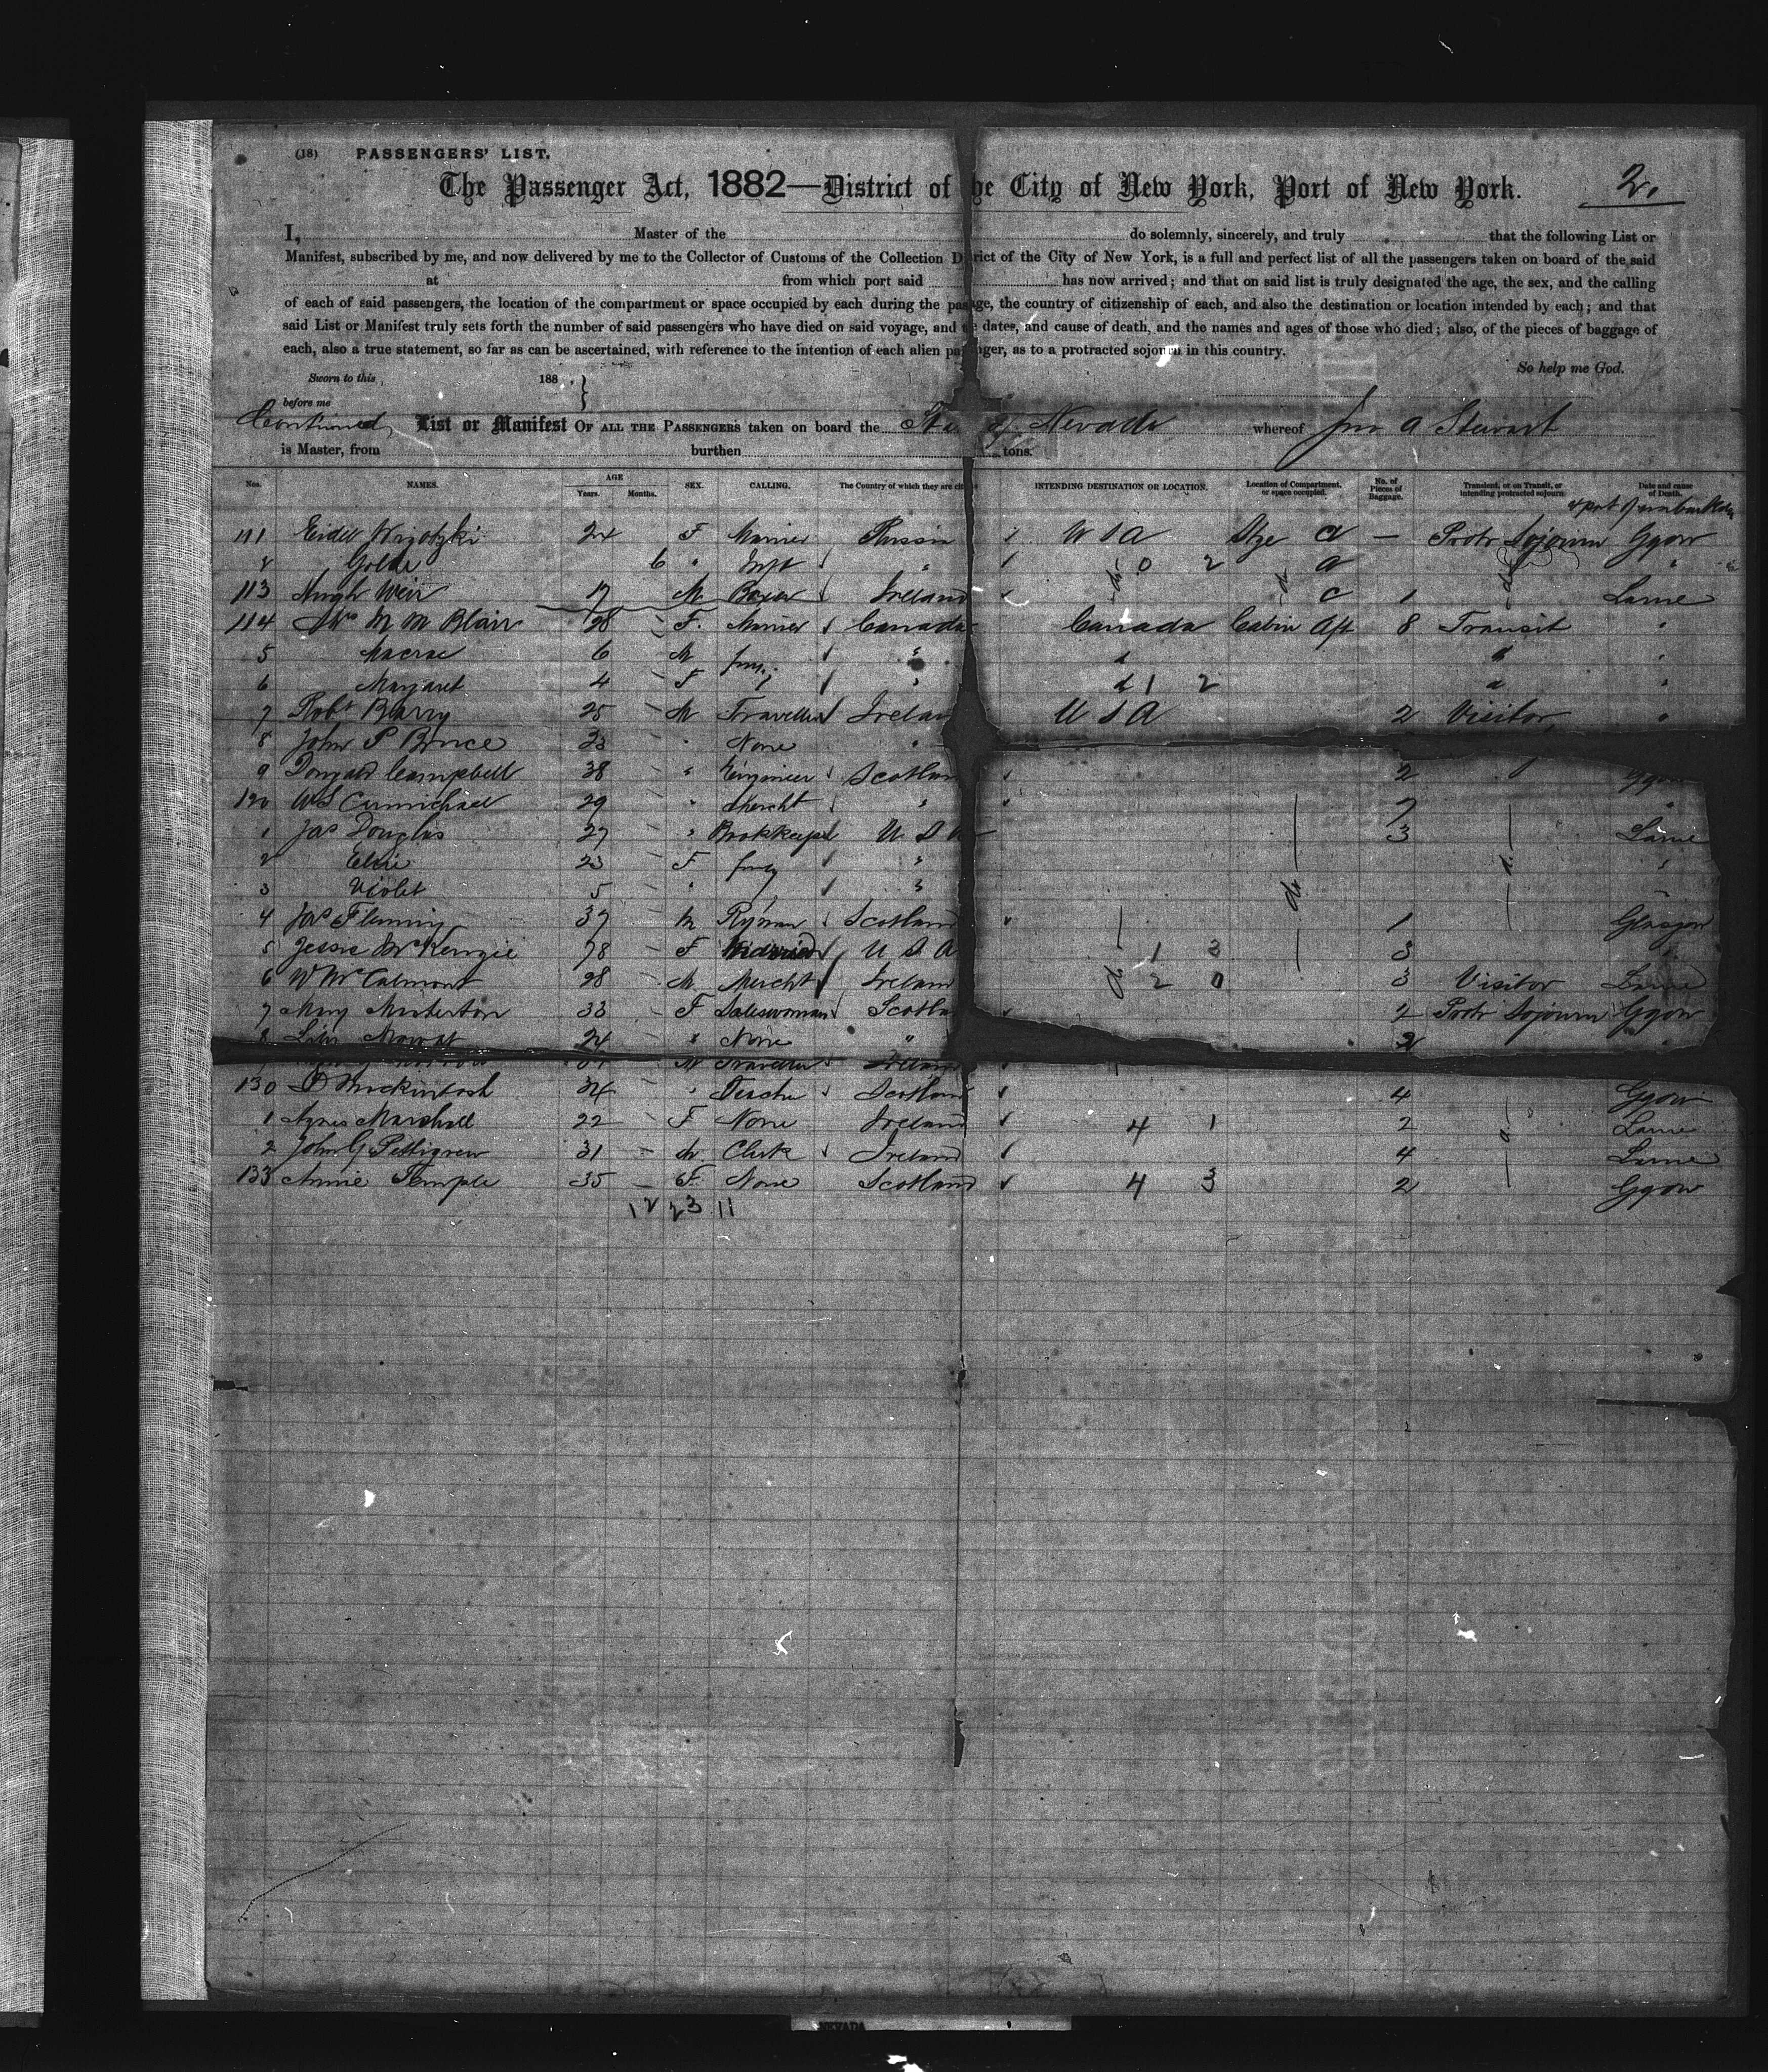 (18) PASSENGERS' LIST.
The Passenger Act, 1882—District of the City of New York, Port of New York. 2.
I, Master of the do solemnly, sincerely, and truly that the following List or
Manifest, subscribed by me, and now delivered by me to the Collector of Customs of the Collection District of the City of New York, is a full and perfect list of all the passengers taken on board of the said
at from which port said has now arrived; and that on said list is truly designated the age, the sex, and the calling
of each of said passengers, the location of the compartment or space occupied by each during the passage, the country of citizenship of each, and also the destination or location intended by each; and that
said List or Manifest truly sets forth the number of said passengers who have died on said voyage, and the dates, and cause of death, and the names and ages of those who died; also, of the pieces of baggage of
each, also a true statement, so far as can be ascertained, with reference to the intention of each alien passenger, as to a protracted sojourn in this country.
So help me God.
Sworn to this 188
before me
Continued List or Manifest OF ALL THE PASSENGERS taken on board the of Nevada whereof Jno A Stewart
is Master, from burthen tons.
Nos. NAMES. AGE Years. Months. SEX. CALLING. The Country of which they are INTENDING DESTINATION OR LOCATION. Location of Compartment, or space occupied. No. of Pieces of Baggage. Transient, or on Transit, or intending protracted sojourn. Date and cause of Death.
& port of embarkation
111 24 F Russia U S A Stge a — Protr Sojourn Ggow
2 Golde 6 " Inft " 0 2 a "
113 Hugh Weir M Ireland c 1 Larne
114 Mrs M M Blair 28 F. Canada Canada Cabin Aft 8 Transit "
5 Macrae 6 M "
6 Margaret 4 F " d 1 2 "
7 Robt Barry 25 M Traveller Irelan U S A 2 Visitor "
8 John P Bruce 23 " None "
9 Dougald Campbell 38 " Engineer Scotlan 2 Ggow
120 29 " Mercht " 7 "
1 Jas Douglas 27 " Bookkeeper U S A 3 Larne
2 Elsie 23 F "
3 Violet 5 " "
4 Jas Fleming 37 M Ryman Scotland 1 Glasgow
5 Jessie McKenzie 78 F U S A 1 3 3
6 W McCalmont 28 M Mercht Ireland 2 0 3 Visitor Larne
7 Mary 33 F Saleswoman Scotla 2 Protr Sojourn Ggow
8 Mowat 24 " None " 2 "
M Traveller Ireland
130 D Mackintosh 34 " Scotland 4 Ggow
1 Agnes Marshall 22 F None Ireland 4 1 2 Larne
2 John G Pettigrew 31 M Clerk Ireland 4 Larne
133 Annie Temple 35 F. None Scotland 4 3 2 Ggow
12 23 11
NEVADA